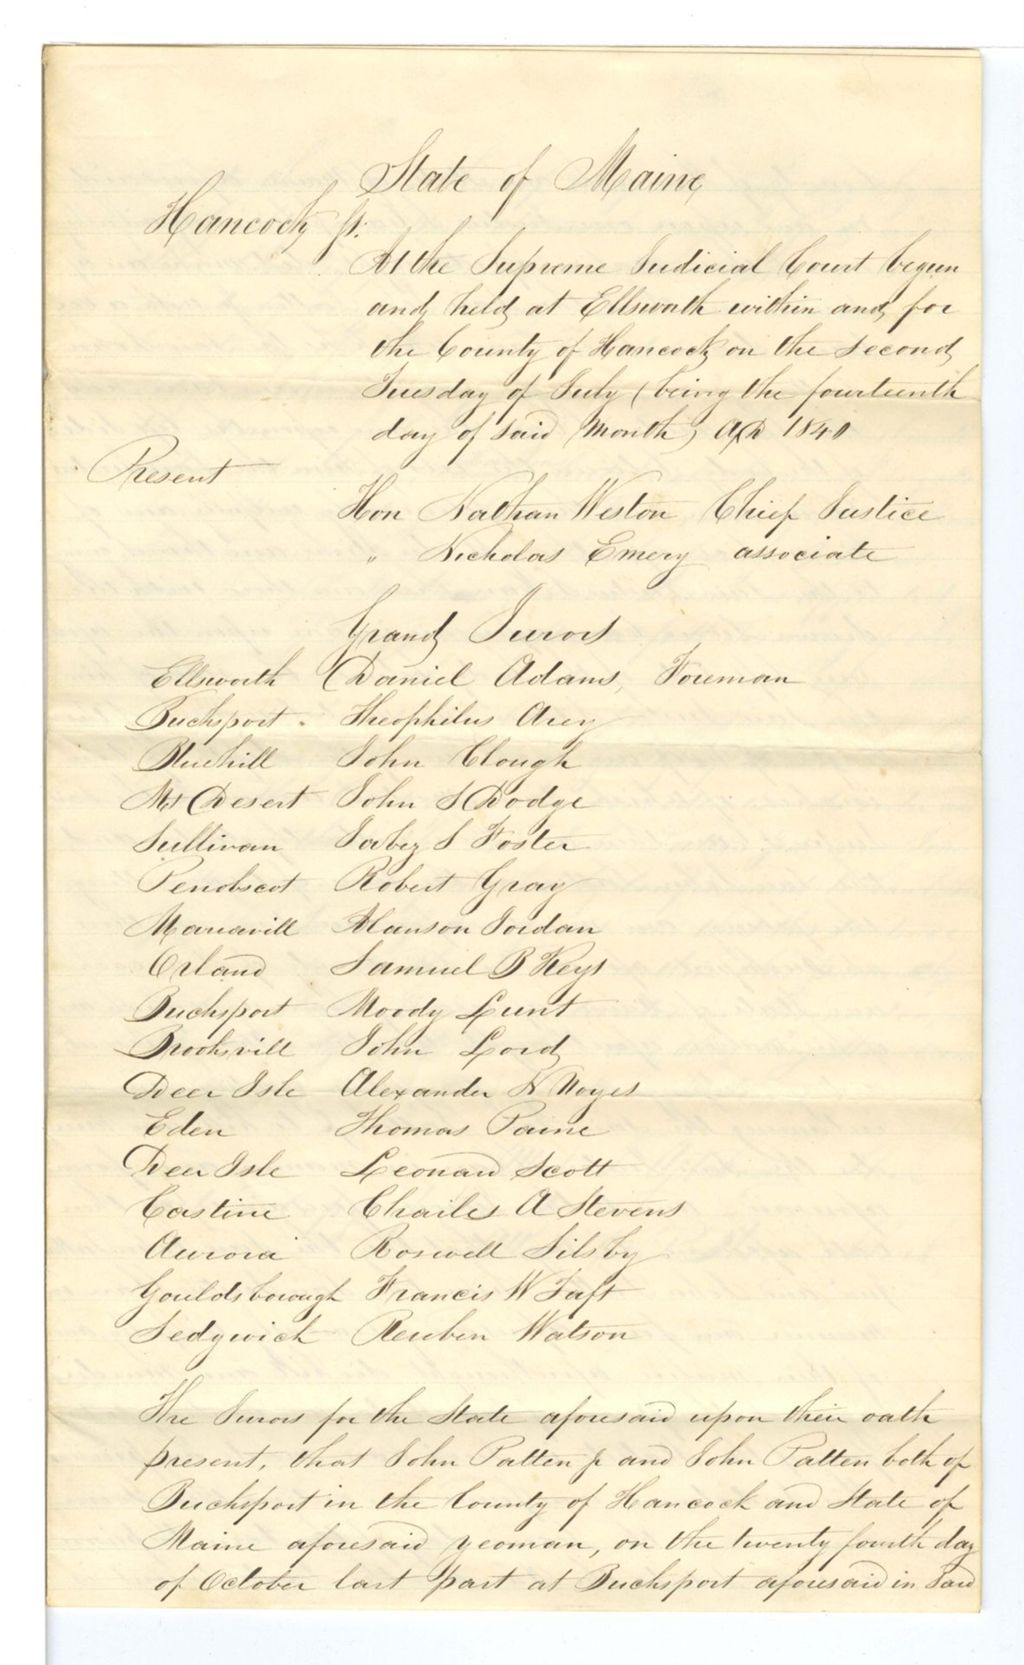 State of Maine
Hancock ss.
At the Supreme Judicial Court begun
and held at Ellsworth within and for
the County of Hancock on the second
Tuesday of July (being the fourteenth
day of said Month) AD 1840
Present
Hon Nathan Weston Chief Justice
" Nicholas Emery associate
Grand Jurors
Ellsworth Daniel Adams, Foreman
Bucksport - Theophilus Arey
Bluehill John Clough
Mt Desert John S Dodge
Sullivan Jabez S Foster
Penobscot Robert Gray
Mariavill Alanson Jordan
Orland Samuel B Keys
Bucksport Moody Lunt
Brooksvill John Lord
Deer Isle Alexander H Noyes
Eden Thomas Paine
Deer Isle Leonard Scott
Castine Charles A Stevens
Aurora Roswell Silsby
Gouldsborough Francis W Taft
Sedgwick Reuben Watson
The Jurors for the State aforesaid upon their oath
present, that John Patten jr and John Patten both of
Bucksport in the County of Hancock and State of
Maine aforesaid yeoman, on the twenty fourth day
of October last past at Bucksport aforesaid in said